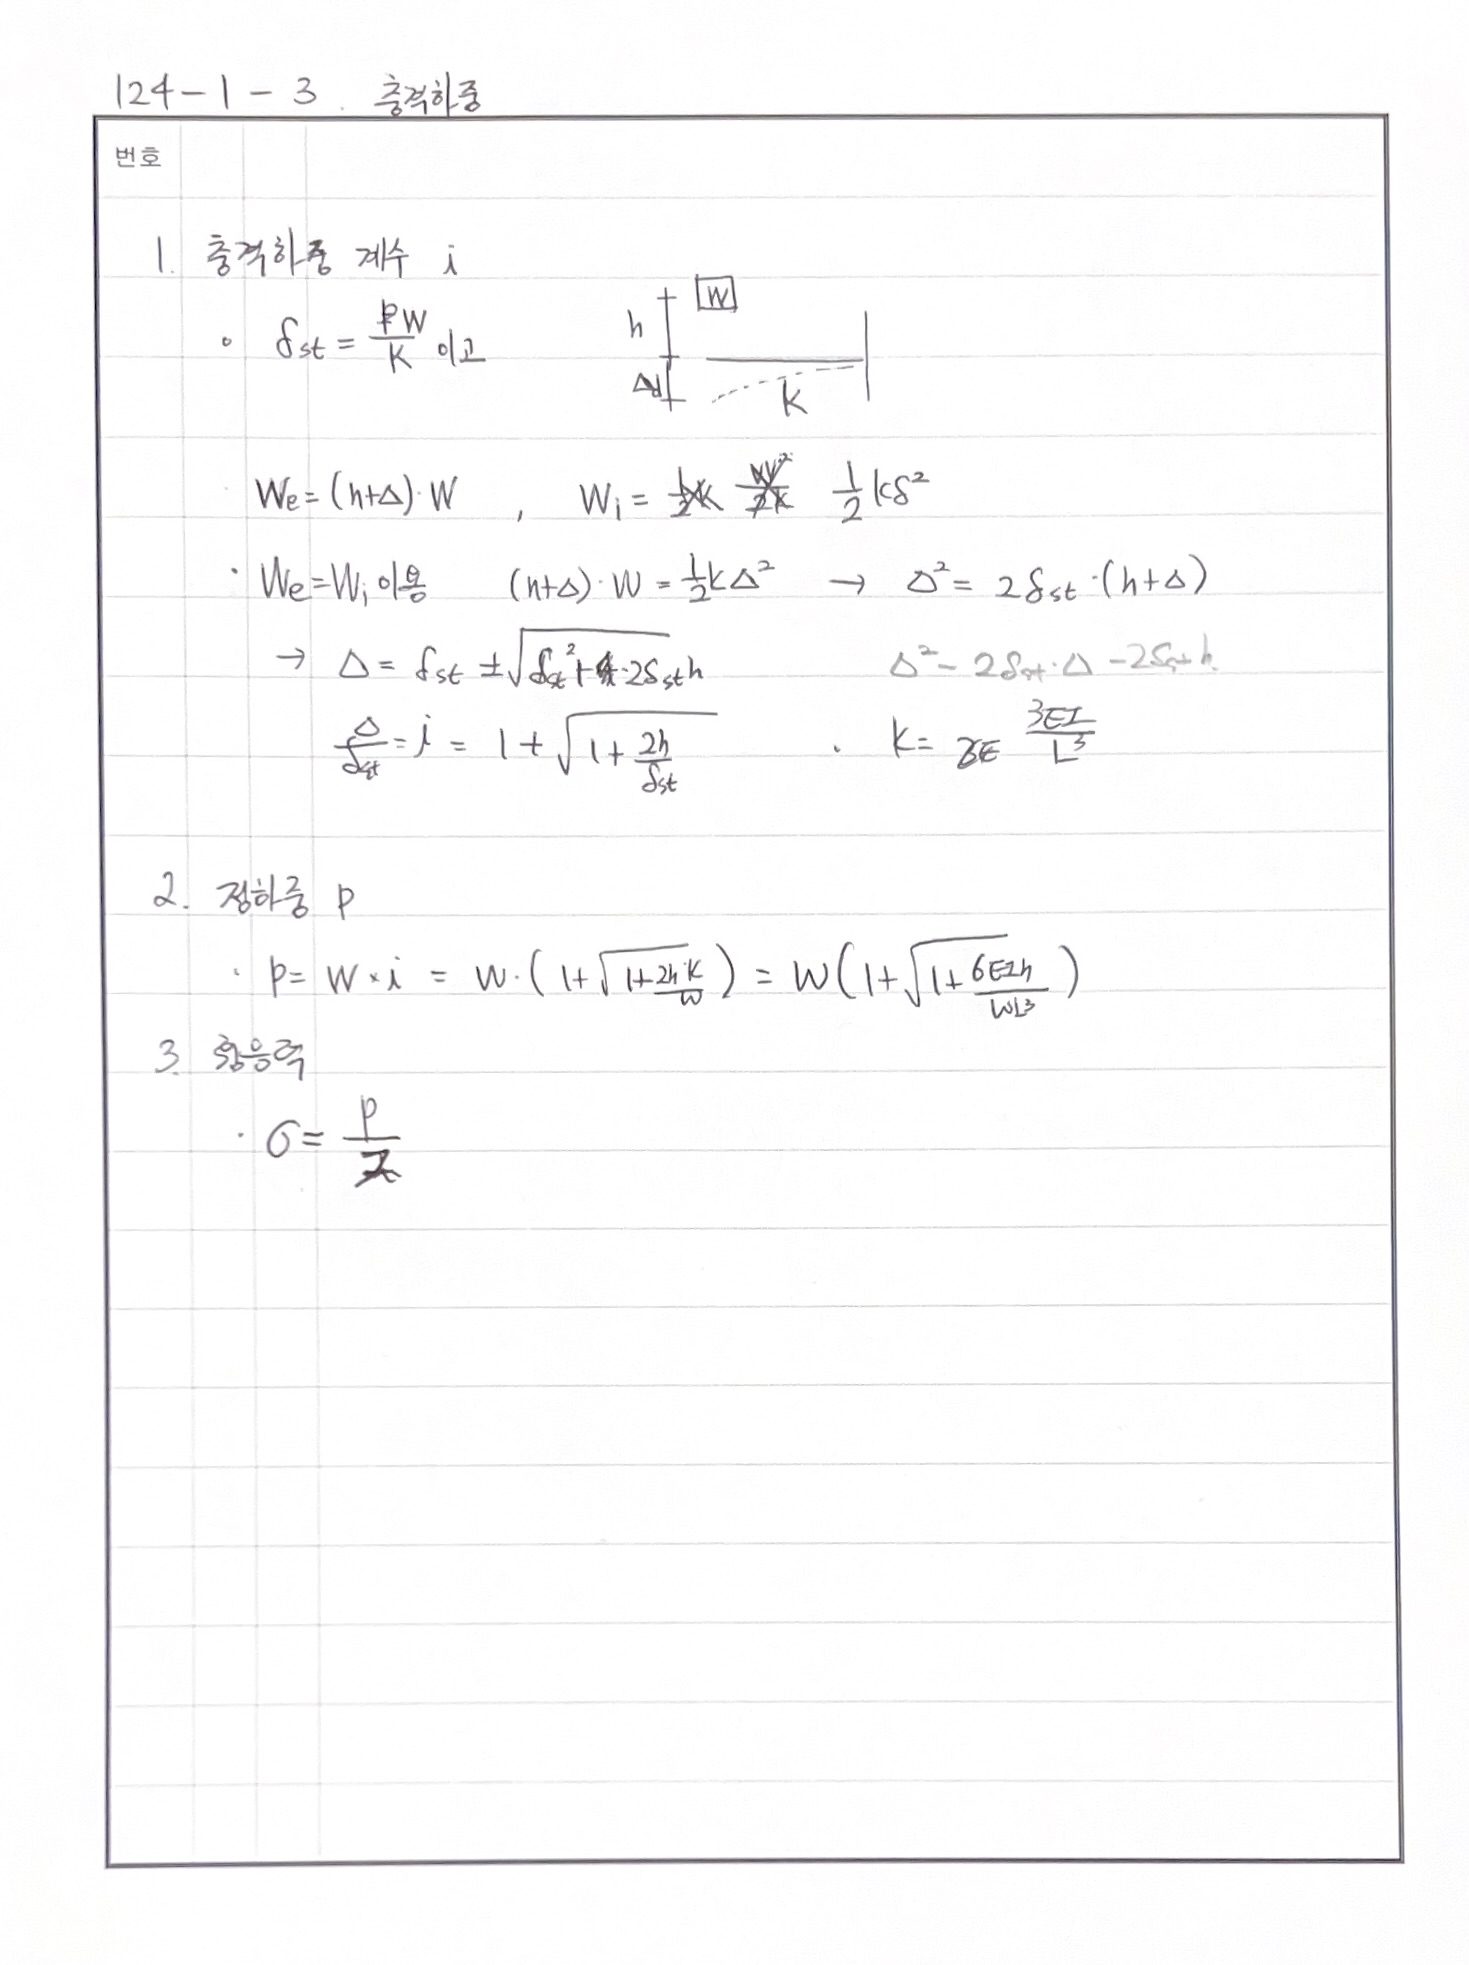 124-1-3. 충격하중
번호
1. 충격하중 계수 i
δst = W/K 이고
W
h
Δ
K
We = (h+Δ)·W , Wi = 1/2 kδ²
· We=Wi 이용 (h+Δ)·W = 1/2 kΔ² → Δ² = 2δst·(h+Δ)
→ Δ = δst ± √(δst² + 2δst h) Δ² - 2δst·Δ - 2δst h
Δ/δst = i = 1 + √(1 + 2h/δst) · K = 3EI/L³
2. 정하중 P
· P = W × i = W·(1+√(1+2h·K/W)) = W(1+√(1+6EIh/WL³))
3. 휨응력
· σ = P/Z